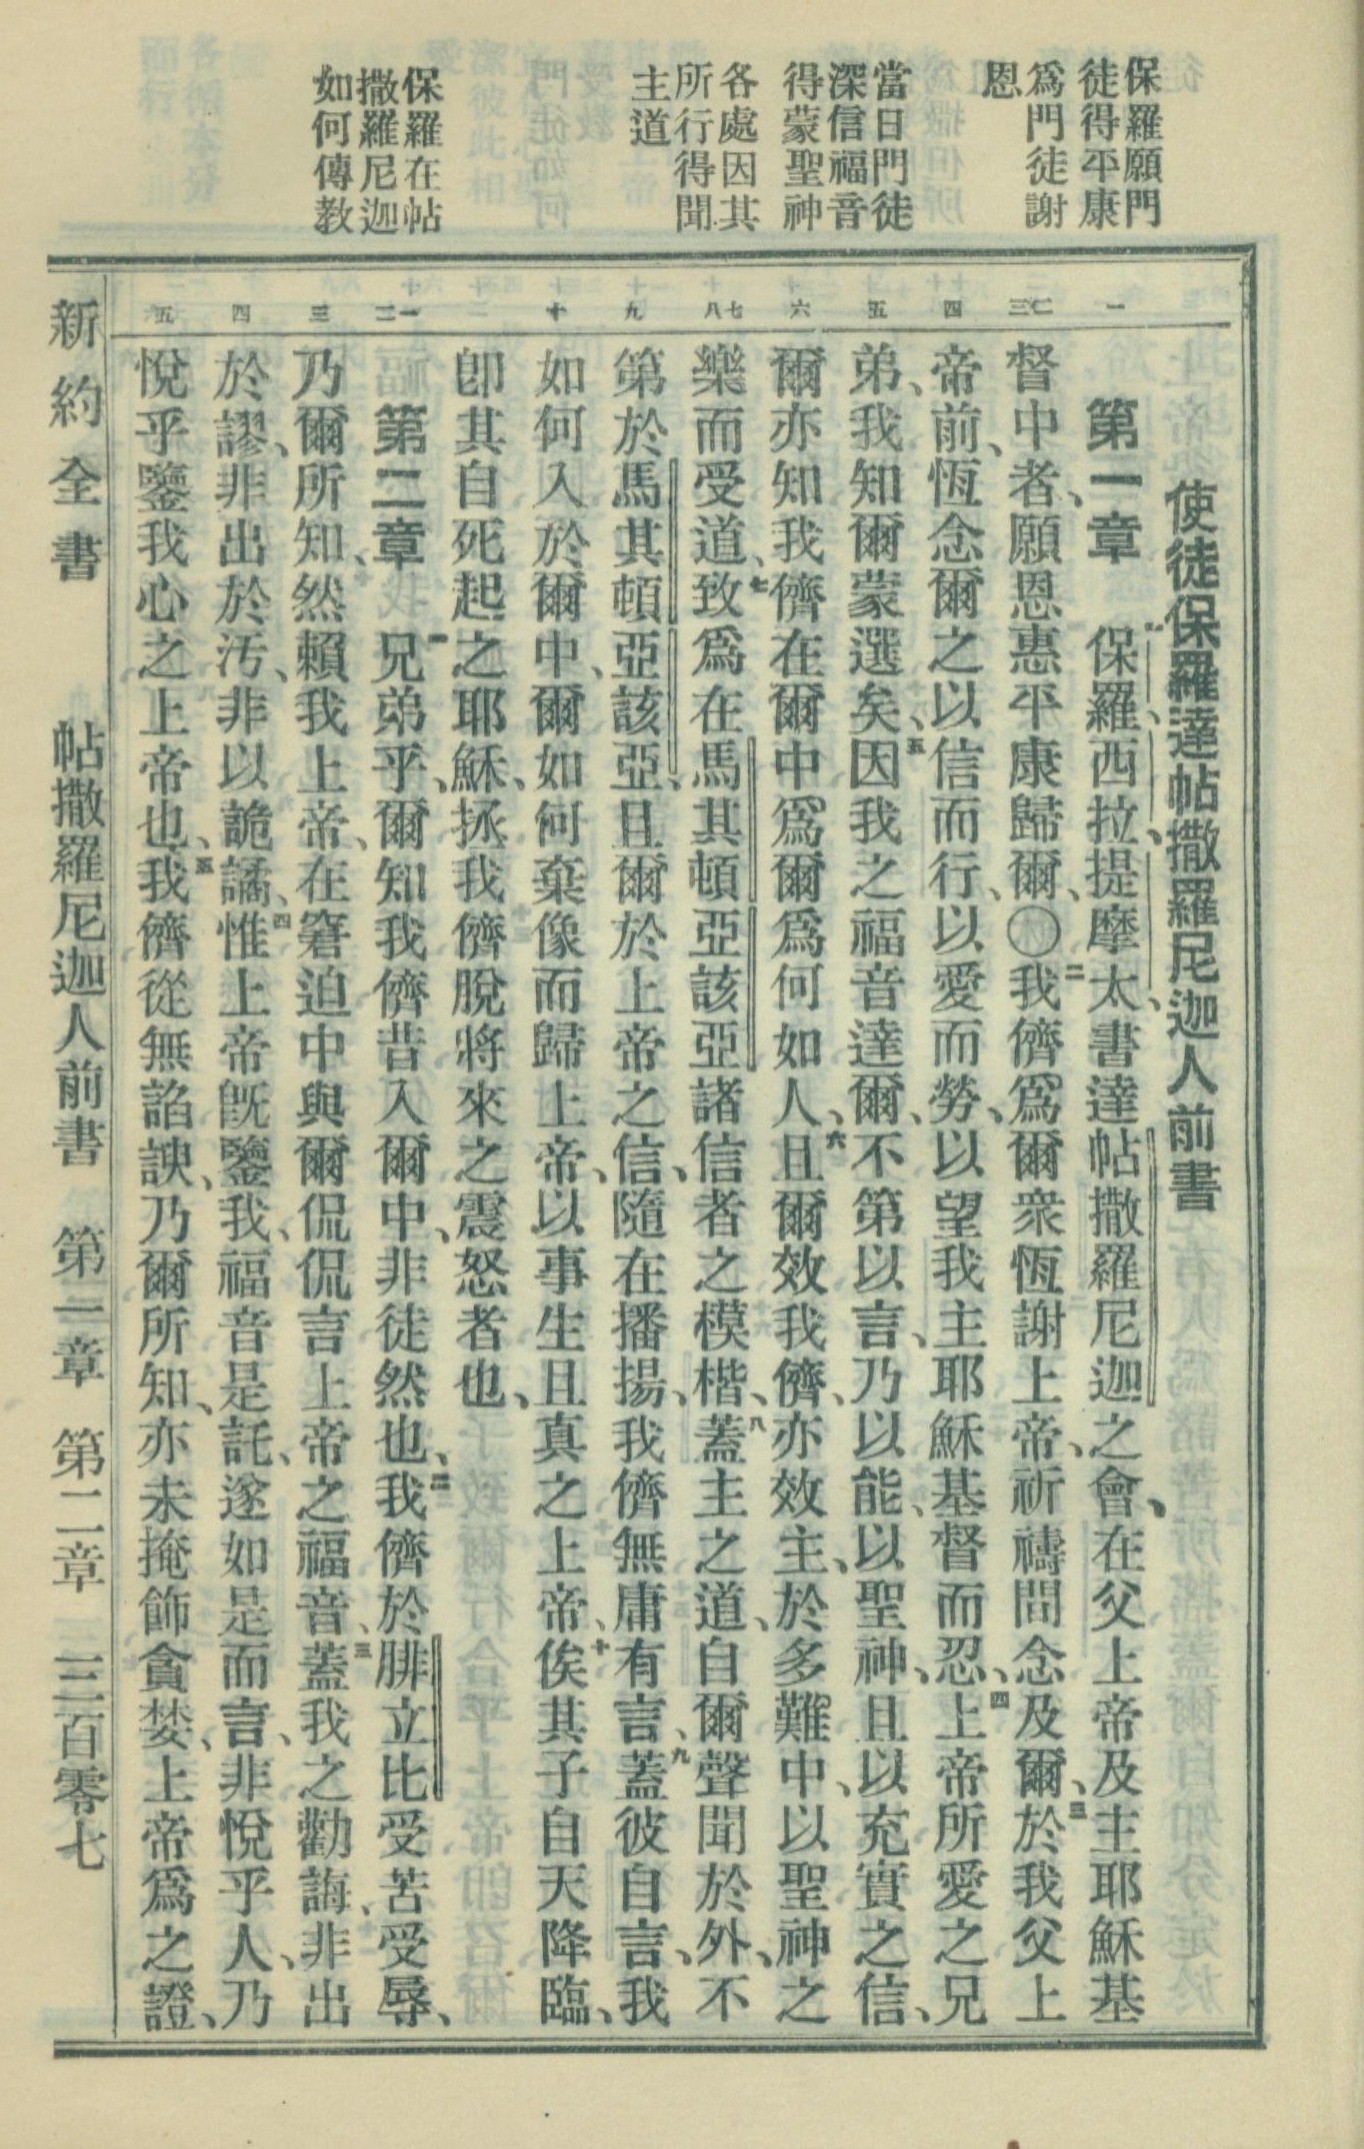 保羅願門
徒得平康
爲門徒謝
恩
當日門徒
深信福音
得蒙聖神
各處因其
所行得聞
主道
保羅在帖
撒羅尼迦
如何傳教
使徒保羅達帖撒羅尼迦人前書
一
第一章 一保羅、西拉、提摩太、書達帖撒羅尼迦之會、在父上帝及主耶穌基
二三
督中者、願恩惠平康歸爾、〇二我儕爲爾衆恆謝上帝、祈禱間念及爾、三於我父上
四
帝前、恆念爾之以信而行、以愛而勞、以望我主耶穌基督而忍、四上帝所愛之兄
五
弟、我知爾蒙選矣、五因我之福音達爾、不第以言、乃以能、以聖神、且以充實之信、
六
爾亦知我儕在爾中、爲爾爲何如人、六且爾效我儕、亦效主、於多難中、以聖神之
七八
樂而受道、七致爲在馬其頓亞該亞諸信者之模楷、八蓋主之道、自爾聲聞於外、不
九
第於馬其頓亞該亞、且爾於上帝之信、隨在播揚、我儕無庸有言、九蓋彼自言、我
十
如何入於爾中、爾如何棄像而歸上帝、以事生且真之上帝、十俟其子自天降臨、
卽其自死起之耶穌、拯我儕脫將來之震怒者也、
一二
第二章 一兄弟乎、爾知我儕昔入爾中、非徒然也、二我儕於腓立比受苦受辱、
三
乃爾所知、然賴我上帝、在窘迫中與爾侃侃言上帝之福音、三蓋我之勸誨、非出
四
於謬、非出於汚、非以詭譎、四惟上帝旣鑒我、福音是託、遂如是而言、非悅乎人、乃
五
悅乎鑒我心之上帝也、五我儕從無諂諛、乃爾所知、亦未掩飾貪婪、上帝爲之證、
新約全書 帖撒羅尼迦人前書 第一章 第二章 三百零七